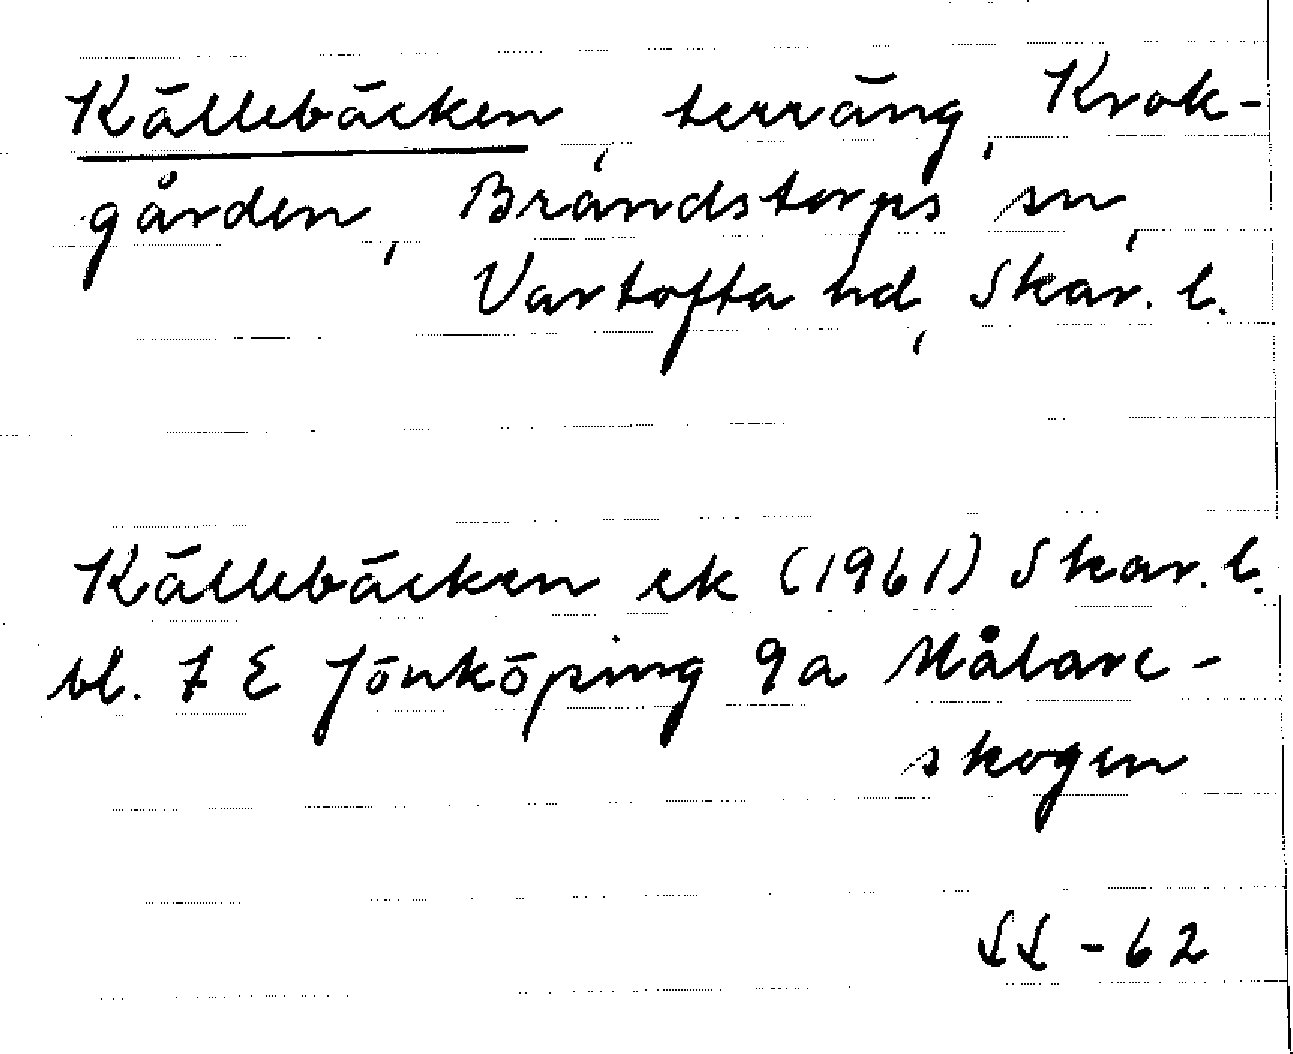 Källebäcken, terräng, Krok-
gården, Brandstorps sn,
Vartofta hd, Skar. l.
Källebäcken ek (1961) Skar. l.
bl. 7 E Jönköping 9a Målare-
skogen
SS - 62